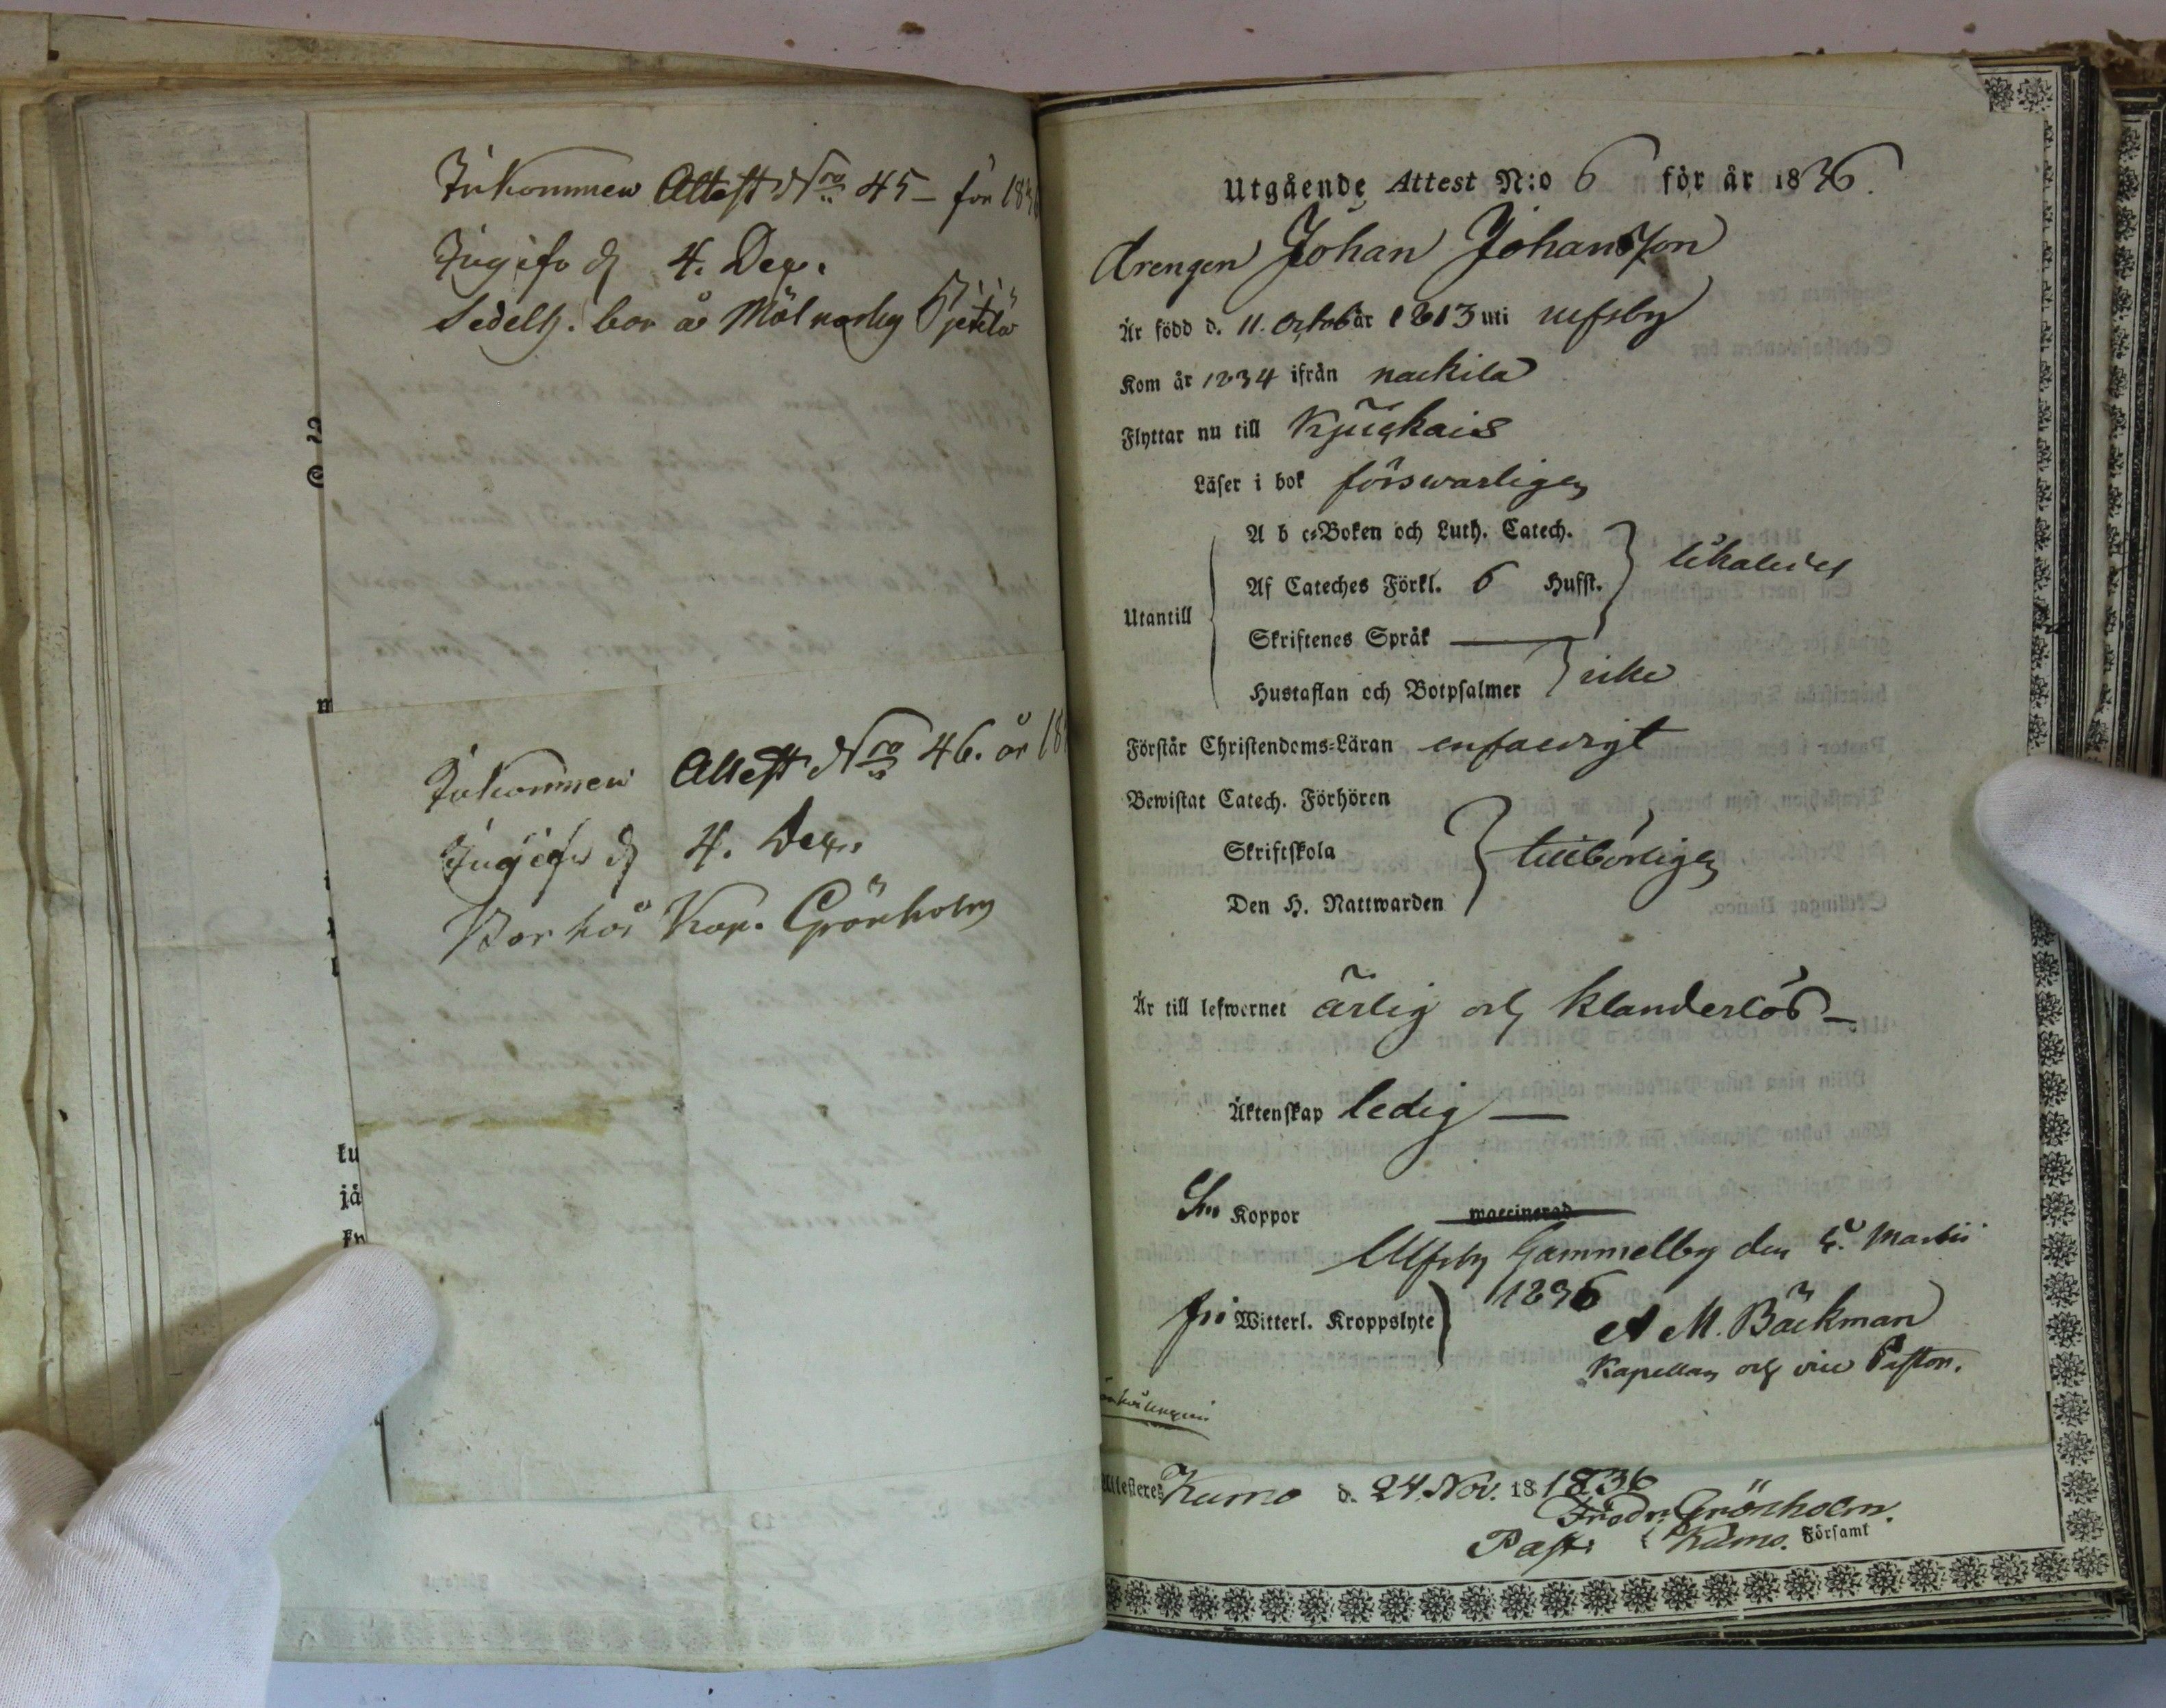 Inkommen Attest Nro 45 - för 183
Ingifv d 4. Dec.
Sedelh. bor å Mölnarby
Inkommen Attest Nro 46. år 18
Ingifv d 4. Dec.
Bor hos Kap. Grönholm
ku
jä
Utgående Attest N:o 6 för år 1836.
Drengen Johan Johansson
Är född d. 11. Octob år 1813 uti Ulfsby
Kom år 1834 ifrån nackila
Flyttar nu till Kjulois
Läser i bok förswarligen
A b c-Boken och Luth. Catech.
Af Cateches Förkl. 6 Hufst. likaledes
Utantill
Skriftenes Språk
Hustaflan och Botpsalmer icke
Förstår Christendoms-Läran enfaldigt
Bewistat Catech. Förhören
Skriftskola tillbörligen
Den H. Nattwarden
Är till lefwernet ärlig och klanderlös
Äktenskap ledig
Koppor waccinerad
Ulfsby Gammelby den Martii
1836
fri Witterl. Kroppslyte
A M. Bäckman
Kapellan och vice Pastor.
Attesteres Kumo d. 24. Nov. 18 1836
Fredr. Grönholm.
Past. i Kumo. Församl